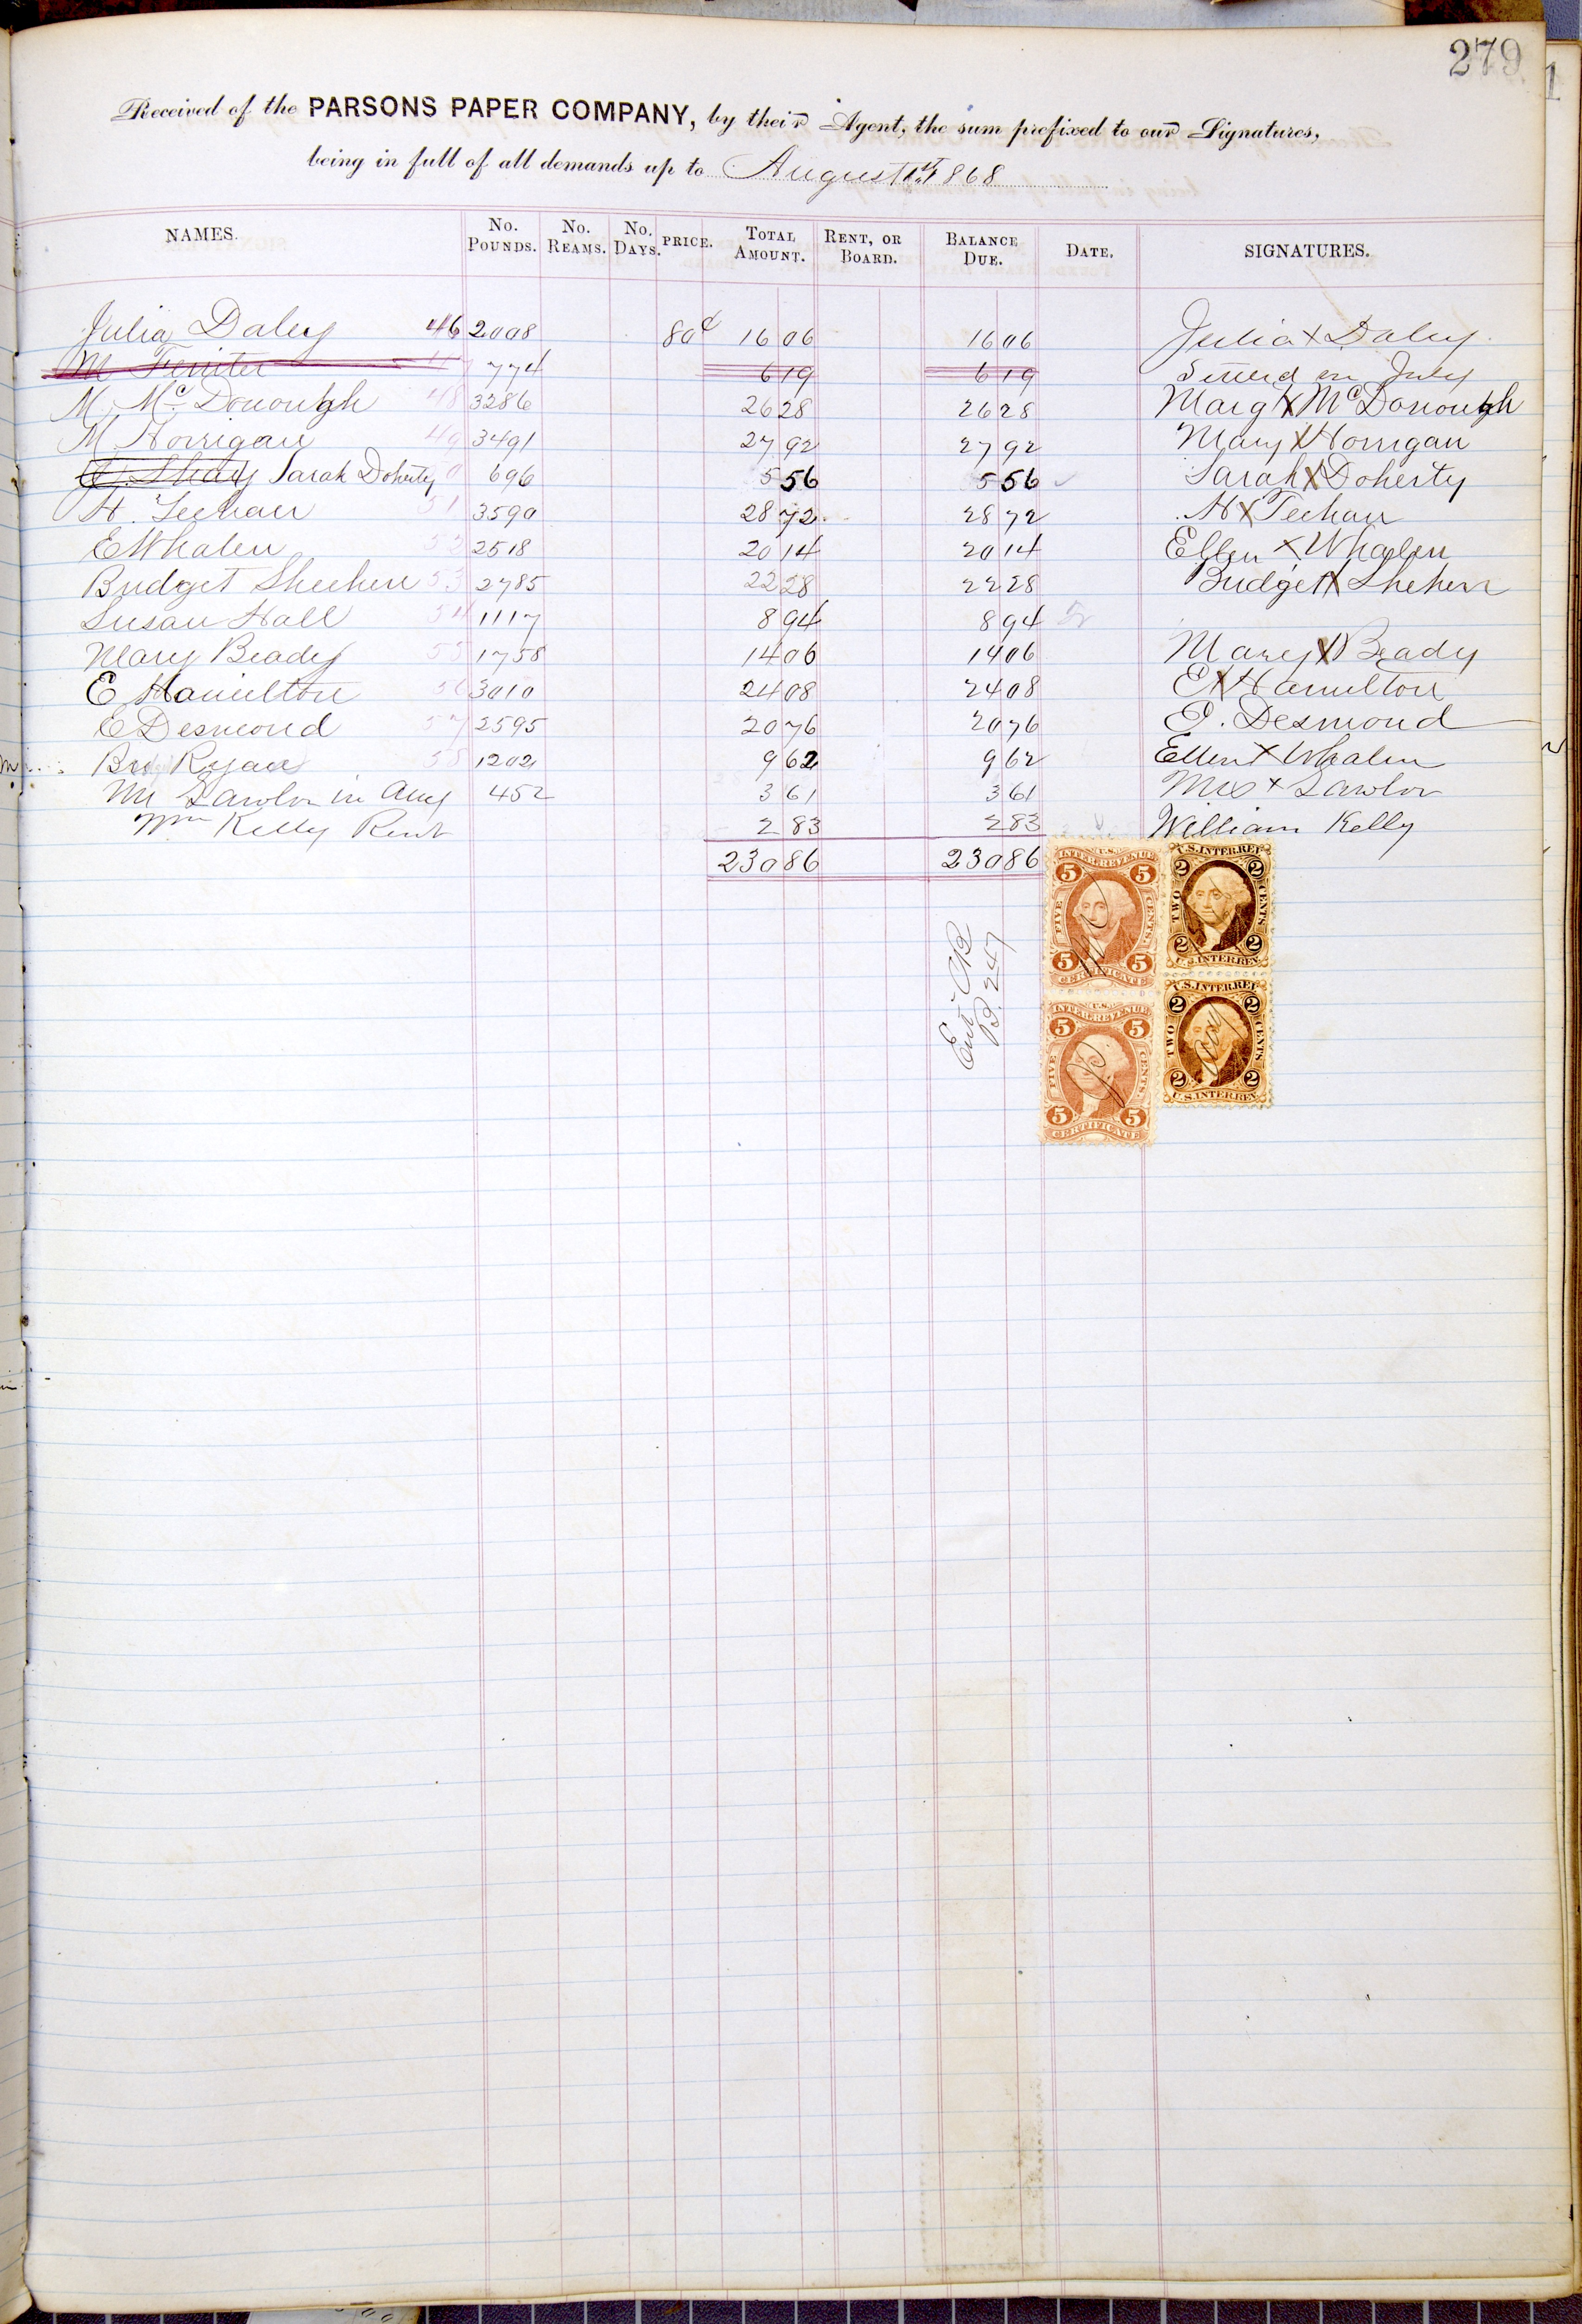 279
Received of the PARSONS PAPER COMPANY, by their Agent, the sum prefixed to our Signatures,
being in full of all demands up to August 1st 1868
NAMES. No. POUNDS. No. REAMS. No. DAYS. PRICE. TOTAL AMOUNT. RENT, OR BOARD. BALANCE DUE. DATE. SIGNATURES.
Julia Daley 46 2008 80¢ 16 06 16 06 Julia X Daley
M Ferriter 47 774 6 19 6 19 Settled in July
M. McDonough 48 3286 26 28 26 28 Marg X McDonough
M Horrigan 49 3491 27 92 27 92 Mary X Horrigan
Shay Sarah Doherty 50 696 5 56 5 56 Sarah X Doherty
H. Teehan 51 3590 28 72 28 72 H X Teehan
E Whalen 52 2518 20 14 20 14 Ellen X Whalen
Bridget Sheehen 53 2785 22 28 22 28 Bridget X Shehen
Susan Hall 54 1117 8 94 8 94
Mary Brady 55 1758 14 06 14 06 Mary X Brady
E Hamilton 56 3010 24 08 24 08 E X Hamilton
E Desmond 57 2595 20 76 20 76 E. Desmond
Bri Ryan 58 1202 9 62 9 62 Ellen X Whalen
Mr Lawlor in Aug 452 3 61 3 61 Mrs X Lawlor
Wm Kelly Rent 2 83 2 83 William Kelly
230 86 230 86
Ent CB
P. 247
U.S. INTER. REVENUE 5 5 FIVE CENTS. 5 5 CERTIFICATE
U.S. INTER. REV. 2 2 TWO CENTS 2 2 U.S. INTER. REV.
U.S. INTER. REVENUE 5 5 FIVE CENTS. 5 5 CERTIFICATE
U.S. INTER. REV. 2 2 TWO CENTS 2 2 U.S. INTER. REV.